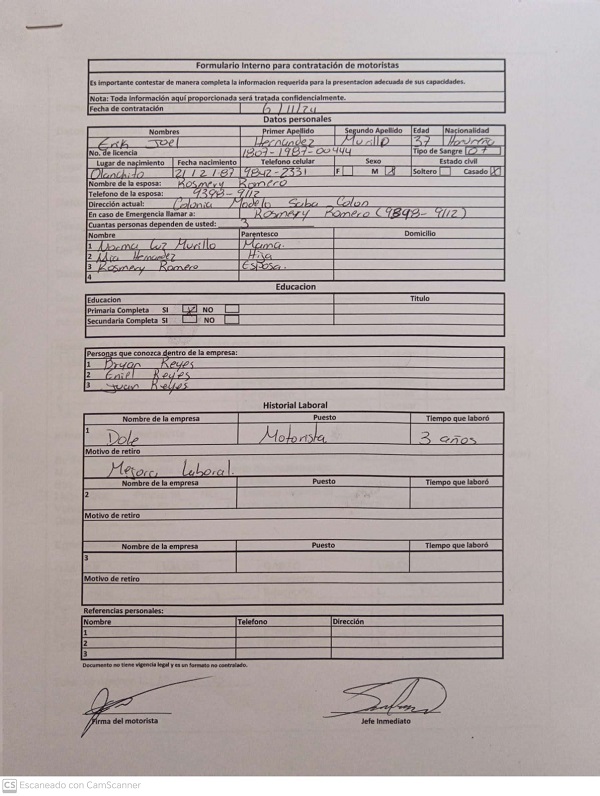 Formulario Interno para contratación de motoristas
Es importante contestar de manera completa la informacion requerida para la presentacion adecuada de sus capacidades.
Nota: Toda información aquí proporcionada será tratada confidencialmente.
Fecha de contratación 6/11/24
Datos personales
Nombres Primer Apellido Segundo Apellido Edad Nacionalidad
Erik Joel Hernandez Murillo 37
No. de licencia 1807-1987-00444 Tipo de Sangre O+
Lugar de nacimiento Fecha nacimiento Telefono celular Sexo Estado civil
Olanchito 21 2 1987 9842-2331 F M Soltero Casado X
Nombre de la esposa: Rosmery Romero
Telefono de la esposa: 9398-9112
Dirección actual: Colonia Modelo Saba Colon
En caso de Emergencia llamar a: Rosmery Romero (9898-9112)
Cuantas personas dependen de usted: 3
Nombre Parentesco Domicilio
1 Norma Luz Murillo Mama.
2 Mia Hernandez Hija
3 Rosmery Romero Esposa.
4
Educacion
Educacion Titulo
Primaria Completa SI NO
Secundaria Completa SI NO
Personas que conozca dentro de la empresa:
1 Bryan Reyes
2 Eniel Reyes
3 Juan Reyes
Historial Laboral
Nombre de la empresa Puesto Tiempo que laboró
1 Dole Motorista 3 años
Motivo de retiro
Mejora Laboral.
Nombre de la empresa Puesto Tiempo que laboró
2
Motivo de retiro
Nombre de la empresa Puesto Tiempo que laboró
3
Motivo de retiro
Referencias personales:
Nombre Telefono Dirección
1
2
3
Documento no tiene vigencia legal y es un formato no contralado.
Firma del motorista Jefe Inmediato
CS Escaneado con CamScanner